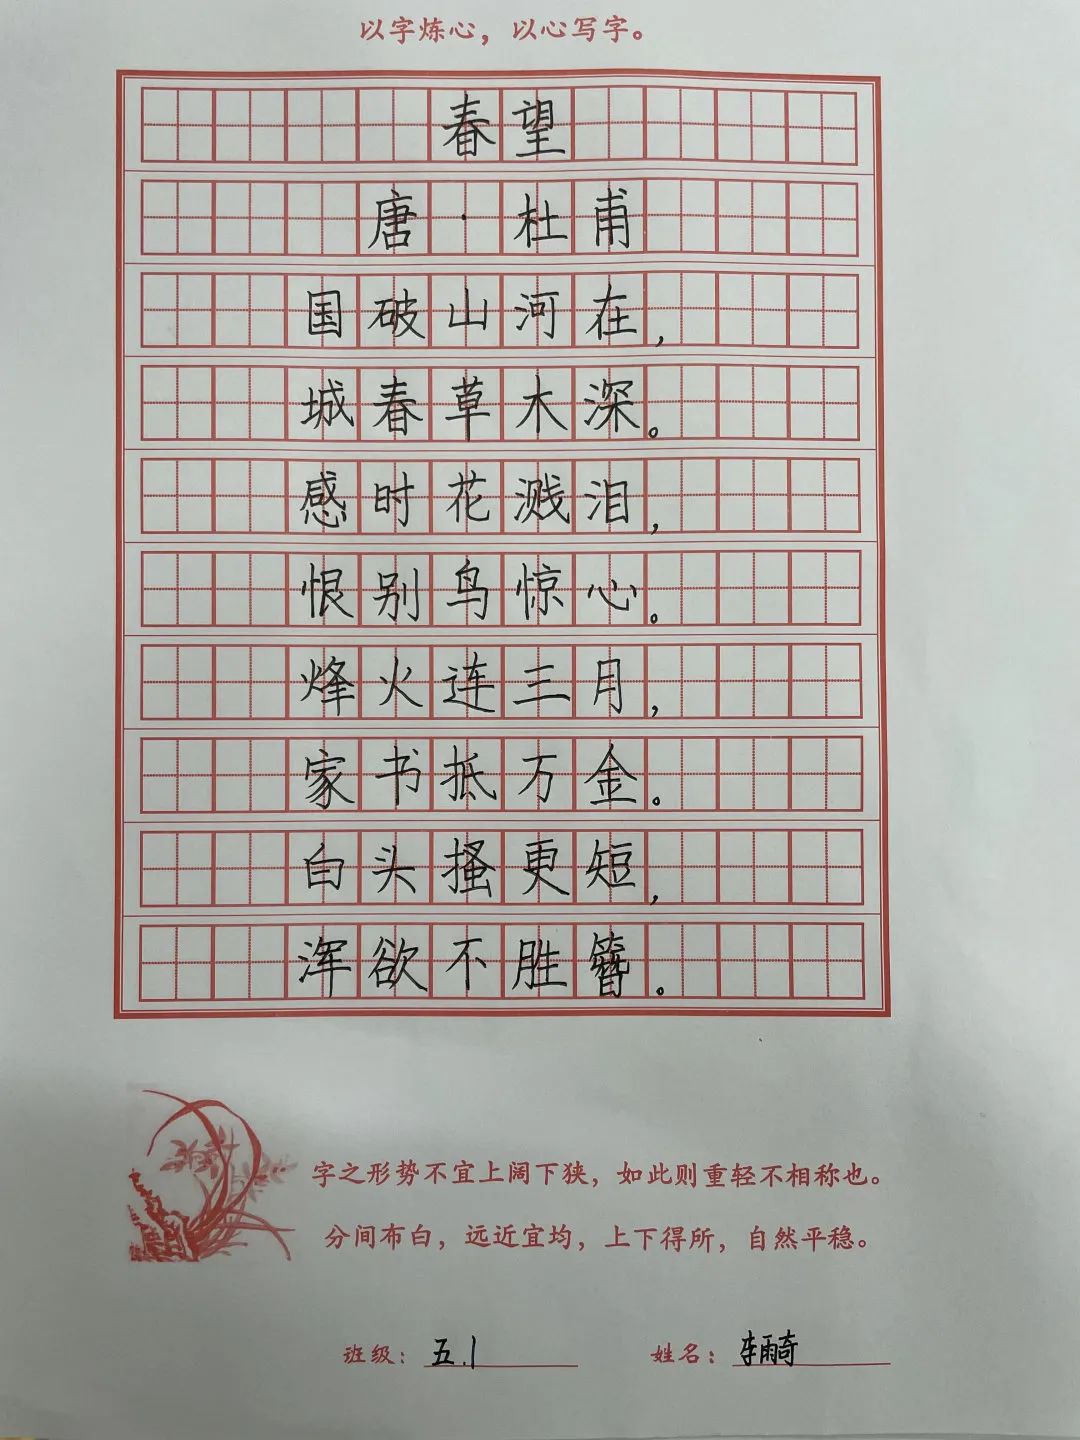 以字炼心，以心写字。
春望
唐·杜甫
国破山河在，
城春草木深。
感时花溅泪，
恨别鸟惊心。
烽火连三月，
家书抵万金。
白头搔更短，
浑欲不胜簪。
字之形势不宜上阔下狭，如此则重轻不相称也。
分间布白，远近宜均，上下得所，自然平稳。
班级：五.1 姓名：